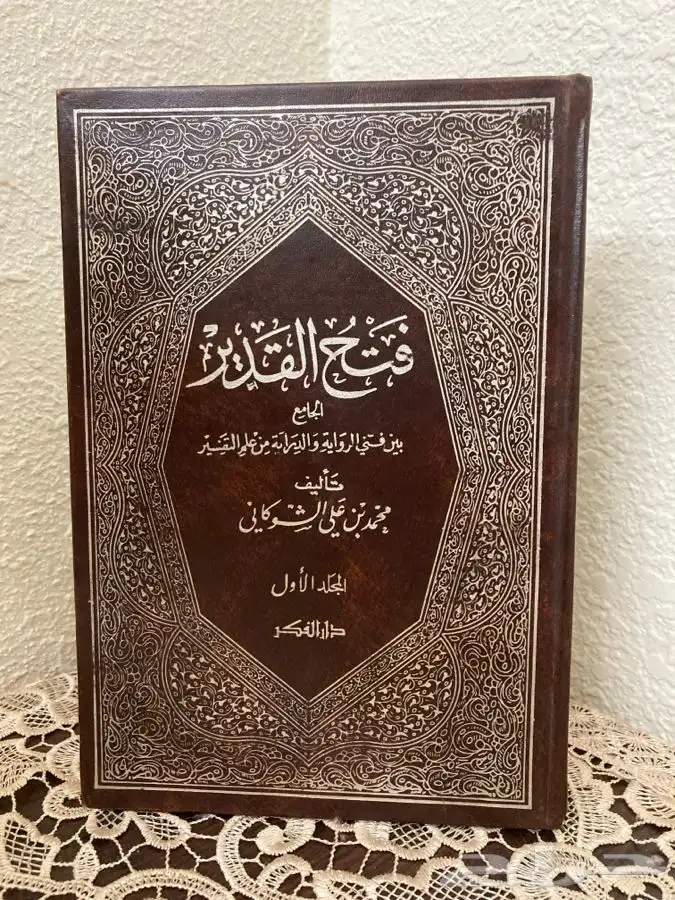 فَتْحُ القَدِير
الجامع
بين فني الرواية والدراية من علم التفسير
تأليف
محمد بن علي الشوكاني
المجلد الأول
دار الفكر
حراج